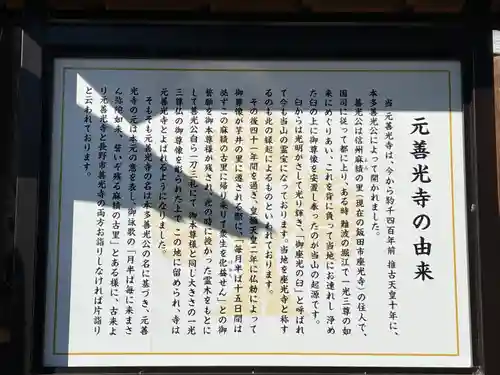 元善光寺の由来
当元善光寺は、今から約千四百年前 推古天皇十年に、
本多善光公によって開かれました。
善光公は信州麻績の里(現在の飯田市座光寺)の住人で、
国司に従って都に上り、ある時 難波の堀江で一光三尊の如
来にめぐりあい、これを背に負って当地にお連れし 浄め
た臼の上に御尊像を安置し奉ったのが当山の起源です。
臼からは光明がさして光り輝き、「御座光の臼」と呼ばれ
て今も当山の霊宝になっております。当地を座光寺と称す
るのも此の縁起によるものといわれております。
その後四十一年間を過ぎ、皇極天皇二年に仏勅によって
御尊像が芋井の里に遷される際に、「毎月半ば十五日間は
必ずこの麻績の古里に帰り来りて衆生を化益せん」との御
誓願を御本尊様が残され、此の時に授かった霊木をもとに
して善光公自ら一刀三礼にて 御本尊様と同じ大きさの一光
三尊仏の御尊像を彫られた上で この地に留められ、寺は
元善光寺とよばれるようになりました。
そもそも元善光寺の名は本多善光公の名に基づき、元善
光寺の元は本元の意を表し、御詠歌の「月半ば毎に来まさ
ん弥陀如来、誓いぞ残る麻績の古里」とある様に、古来よ
り元善光寺と長野市善光寺の両方お詣りしなければ片詣り
と云われております。